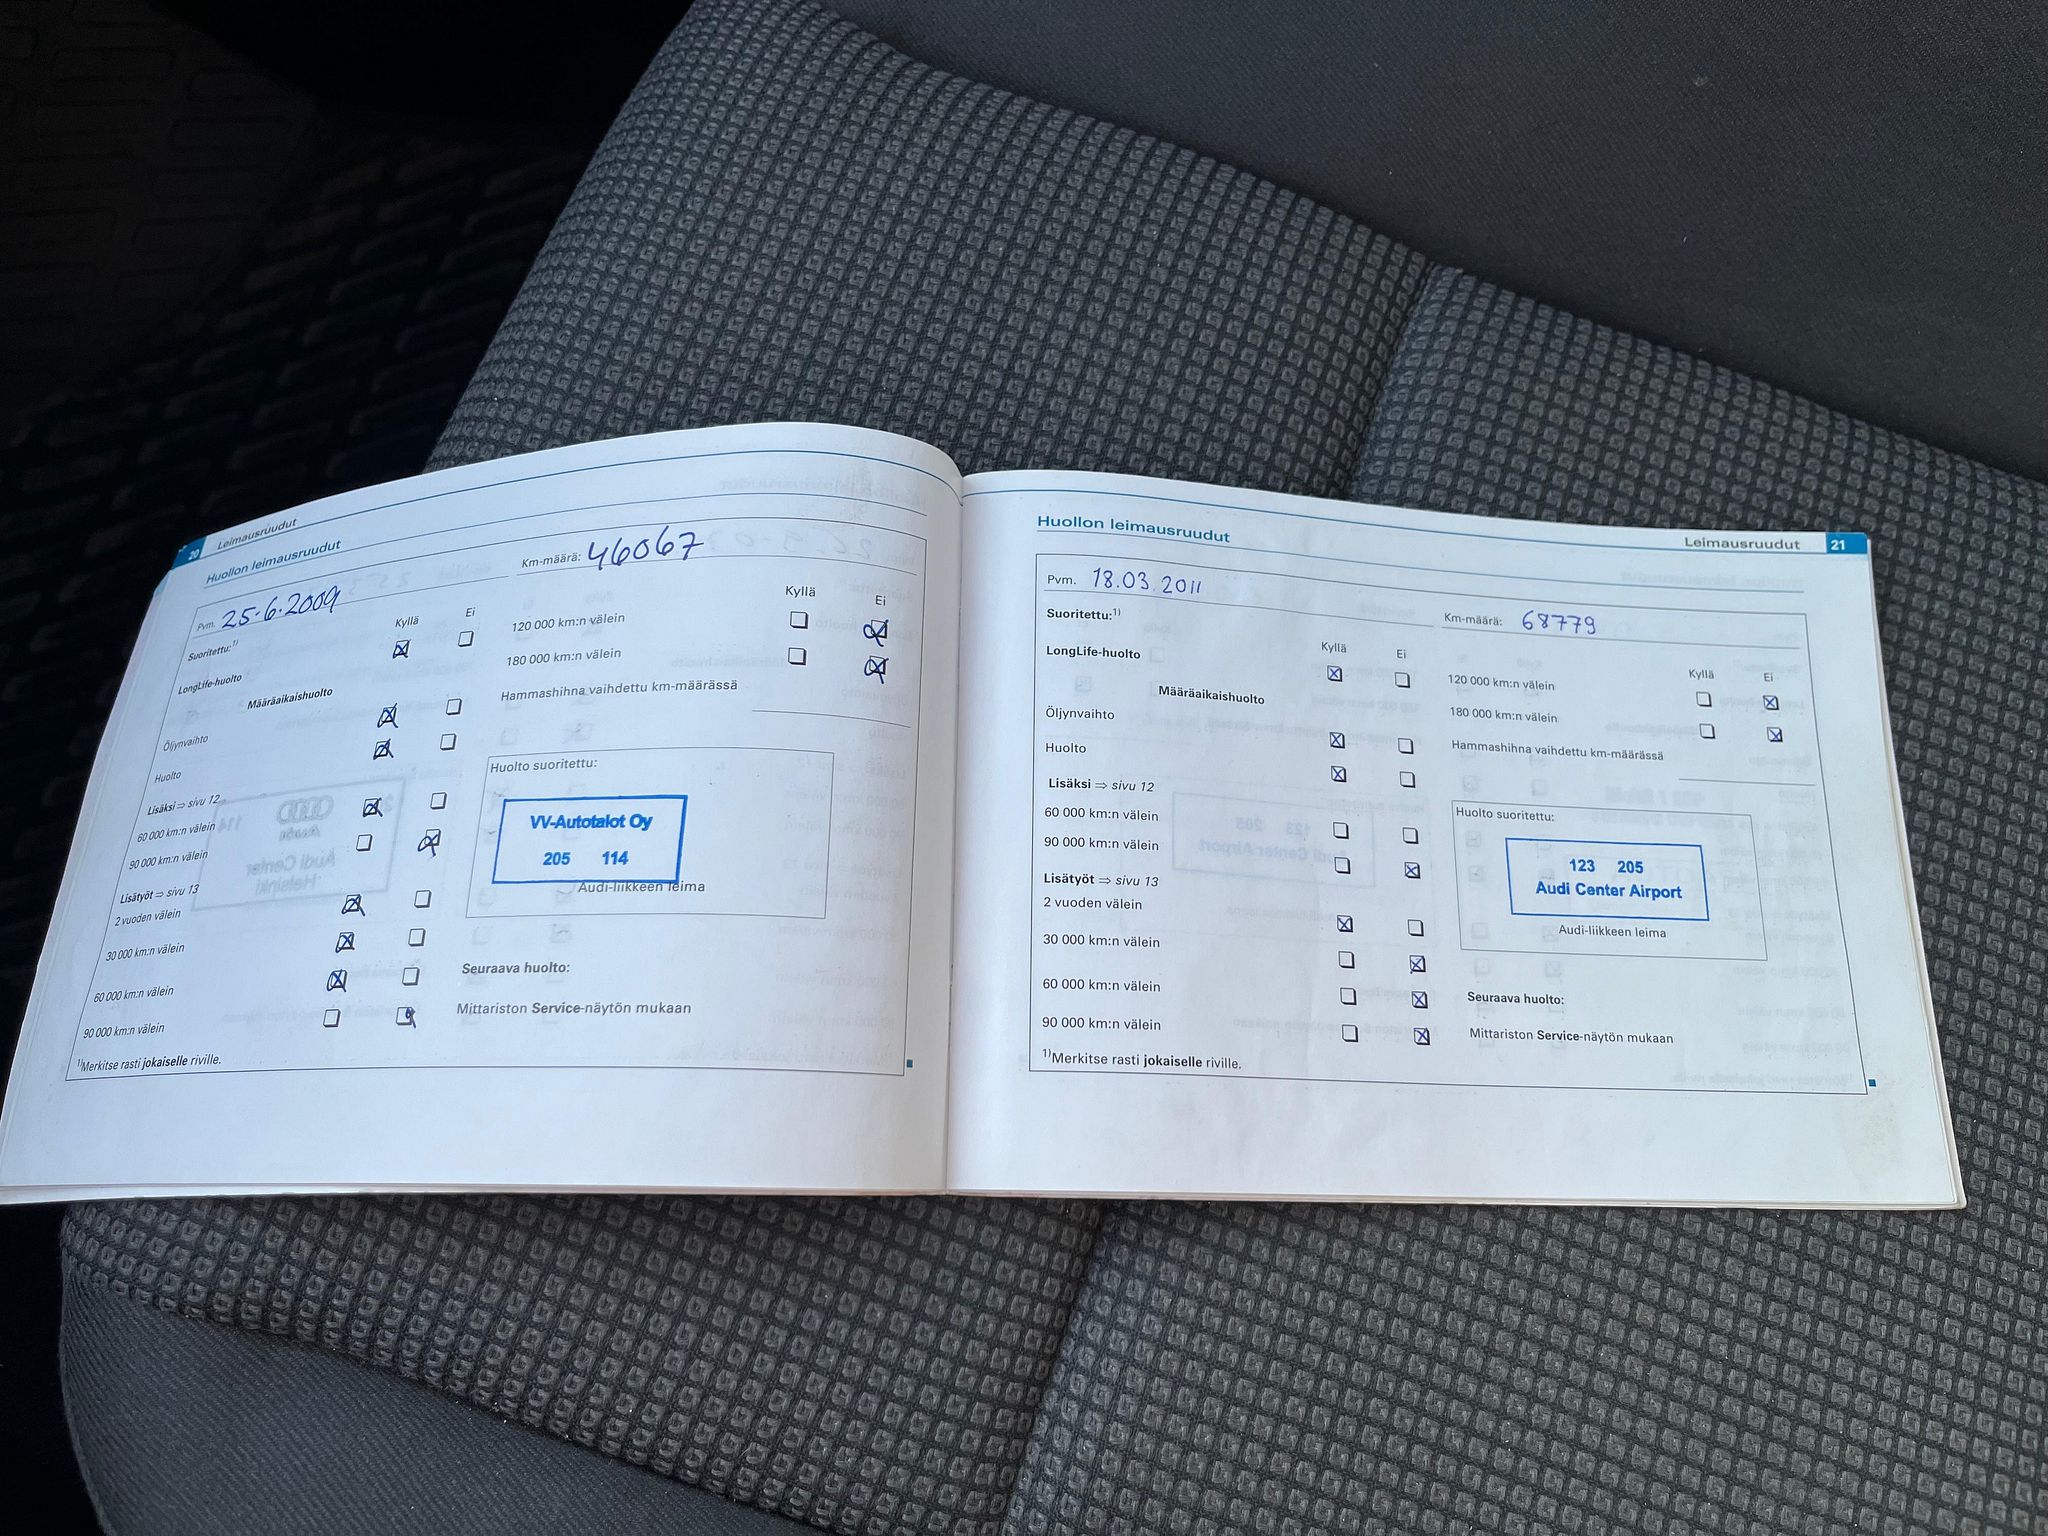 20 Leimausruudut
Huollon leimausruudut
Pvm. 25.6.2009
Km-määrä: 46067
Suoritettu:1)
Kyllä Ei
LongLife-huolto
Määräaikaishuolto
Öljynvaihto
Huolto
Lisäksi ⇒ sivu 12
60 000 km:n välein
90 000 km:n välein
Lisätyöt ⇒ sivu 13
2 vuoden välein
30 000 km:n välein
60 000 km:n välein
90 000 km:n välein
1)Merkitse rasti jokaiselle riville.
Kyllä Ei
120 000 km:n välein
180 000 km:n välein
Hammashihna vaihdettu km-määrässä
Huolto suoritettu:
VV-Autotalot Oy
205 114
Audi-liikkeen leima
Seuraava huolto:
Mittariston Service-näytön mukaan
Huollon leimausruudut
Leimausruudut 21
Pvm. 18.03.2011
Km-määrä: 68779
Suoritettu:1)
Kyllä Ei
LongLife-huolto
Määräaikaishuolto
Öljynvaihto
Huolto
Lisäksi ⇒ sivu 12
60 000 km:n välein
90 000 km:n välein
Lisätyöt ⇒ sivu 13
2 vuoden välein
30 000 km:n välein
60 000 km:n välein
90 000 km:n välein
1)Merkitse rasti jokaiselle riville.
Kyllä Ei
120 000 km:n välein
180 000 km:n välein
Hammashihna vaihdettu km-määrässä
Huolto suoritettu:
123 205
Audi Center Airport
Audi-liikkeen leima
Seuraava huolto:
Mittariston Service-näytön mukaan